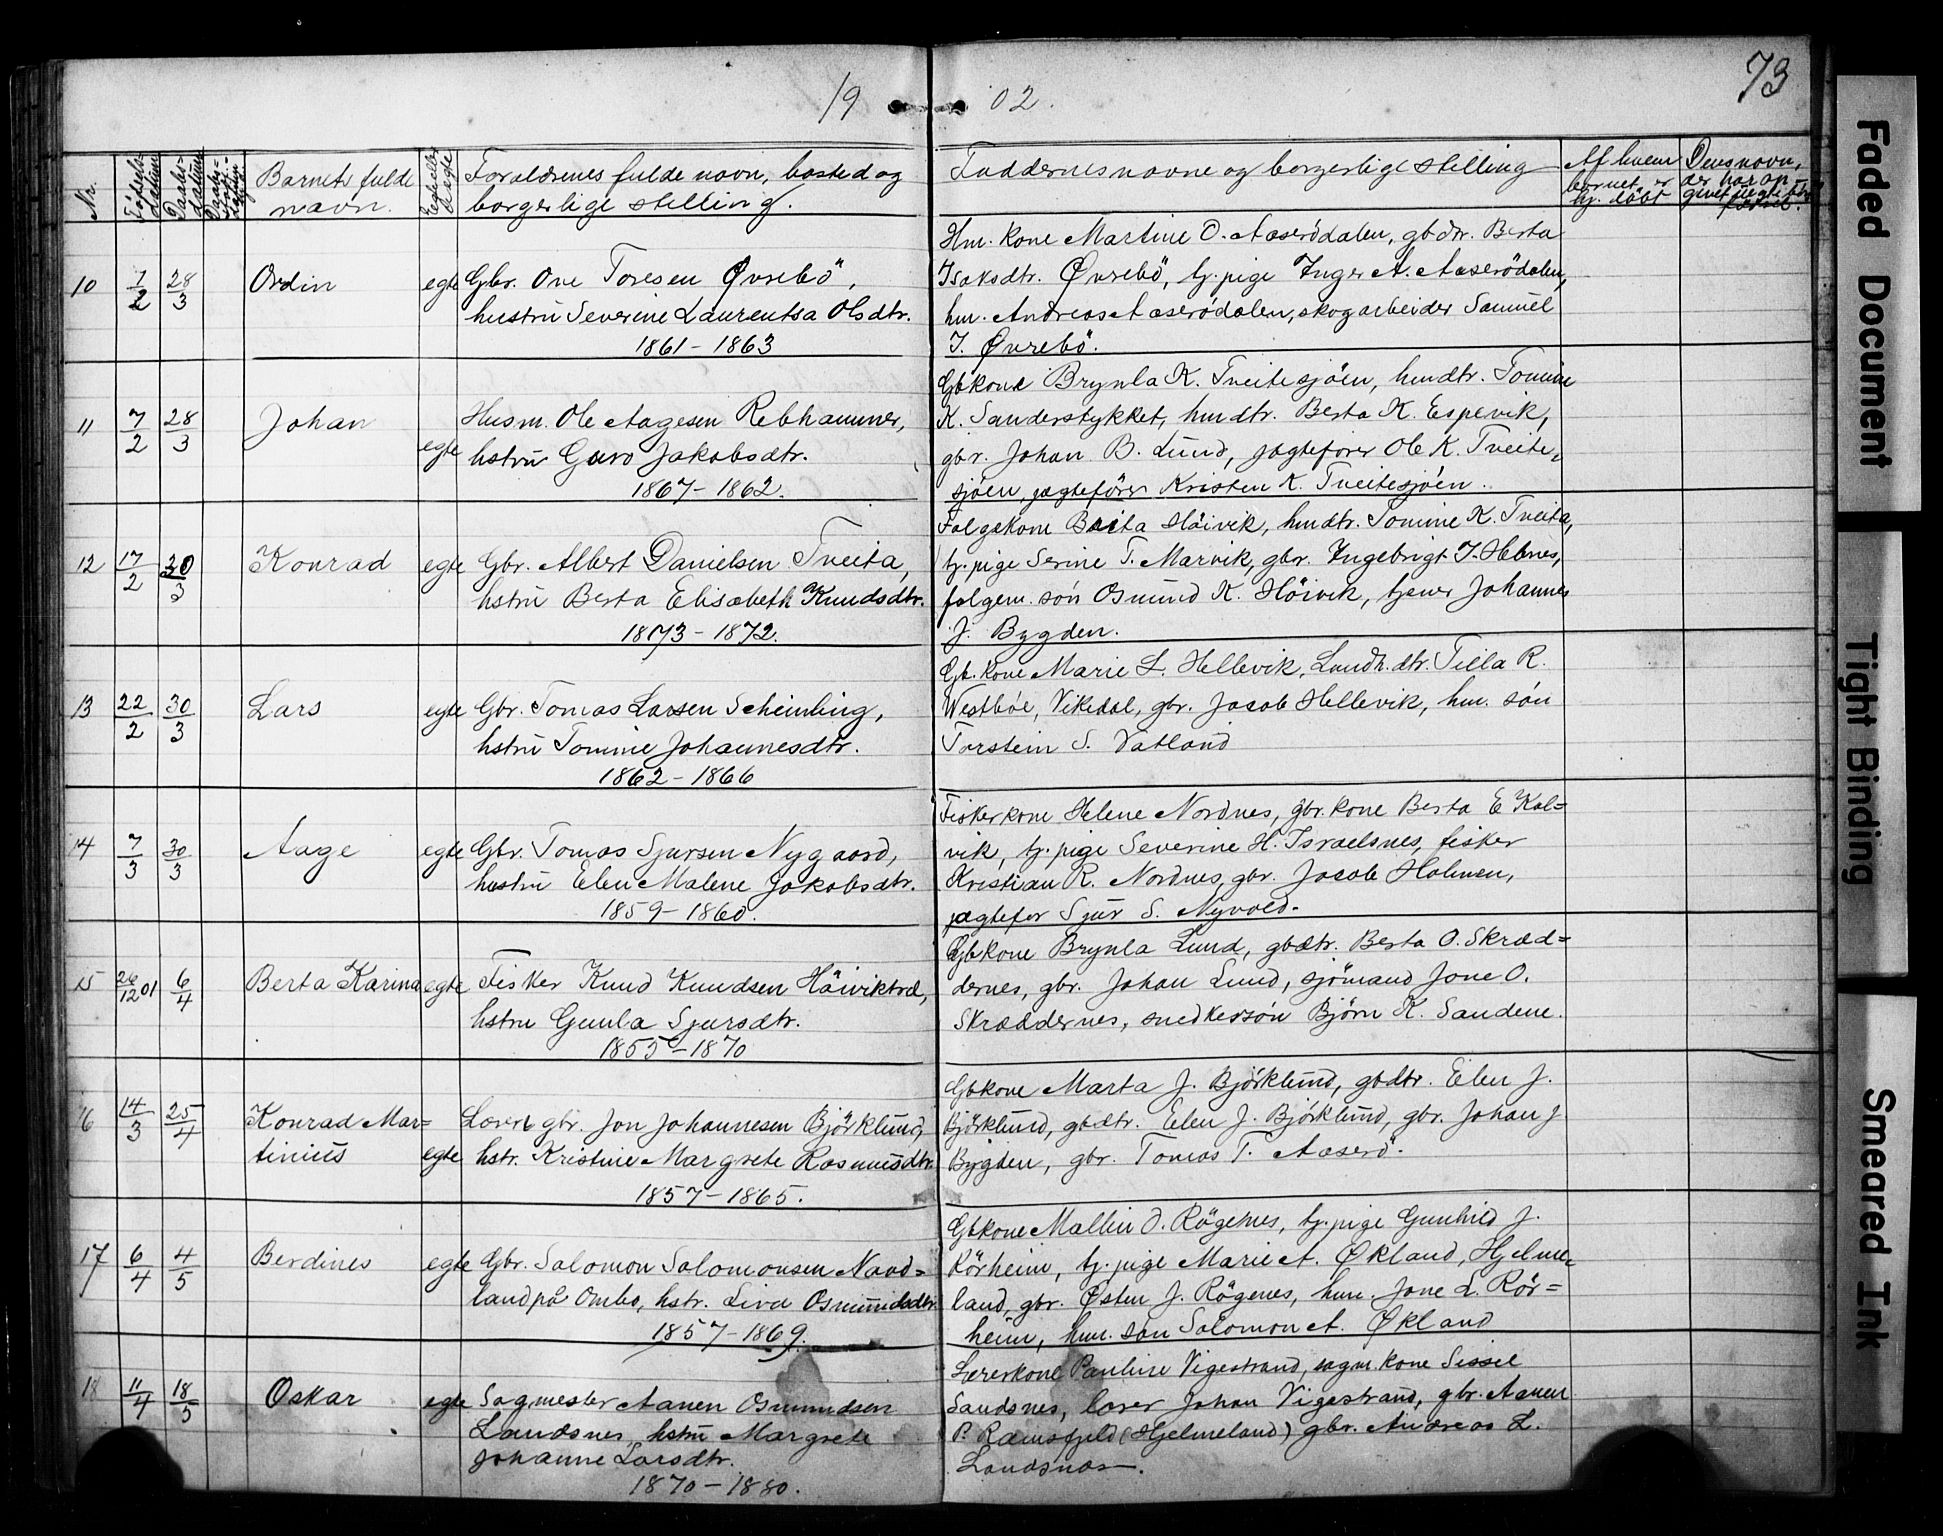 73
19 02.
Nr.
Fødsels-
datum
Daabs-
datum
Barnets fulde
navn.
Forældrenes fulde navn, bosted og
borgerlige stilling.
Faddernes navne og borgerlige stilling
Af hvem
barnet er
hj. døbt
Denes navn,
der har an-
10 7/2 28/3 Ordin egte Gbr. Ove Toresen Øvrebö,
hustrü Severine Laurentsa Olsdtr.
1861 - 1863
Hm. kone Martine O. Aaserödalen, gbdtr. Berta
Isaksdtr. Øvrebö, tj. pige Inger A. Aaserödalen,
hm. Andreas Aaserödalen, skogarbeider Samuel
I. Øvrebö.
11 7/2 28/3 Johan egte Husm. Ole Aagesen Rebhammer,
hstrü Guro Jakobsdtr.
1867 - 1862.
Gbkone Brynla K. Tveitesjöen, hmdtr. Tomine
K. Sanderstykket, hmdtr. Berta K. Espevik,
gbr. Johan B. Lund, jægtefører Ole K. Tveite-
sjöen, jægteförer Kristen K. Tveitesjöen.
12 17/2 30/3 Konrad egte Gbr. Albert Danielsen Tveita,
hstrü Berta Elisabeth Knudsdtr.
1873 - 1872.
Folgekone Brita Höivik, hmdtr. Tomine K. Tveita,
tj. pige Serine T. Marvik, gbr. Ingebrigt I. Helmes,
folgem. sön Osmund K. Höivik, tjener Johannes
J. Bygden.
13 22/2 30/3 Lars egte Gbr. Tomas Larsen Scheimling,
hstrü Tomine Johannesdtr.
1862 - 1866
Gb. kone Marie L. Hellevik, Landh. dtr. Tilla R.
Westbøe, Vikedal, gbr. Jacob Hellevik, hm. sön
Torstein S. Vatland
14 7/3 30/3 Aage egte Gbr. Tomas Sjursen Nygaard,
hustrü Elen Malene Jakobsdtr.
1859 - 1860.
Fiskerkone Helene Nordnes, gbr. kone Berta E Kal=
vik, tj. pige Severine H. Israelsnes, fisker
Kristian R. Nordnes, gbr. Jacob Holmen,
jægtefor Sjur S. Nyvold.
15 26/12 01 6/4 Berta Karina egte Fisker Knud Knudsen Höiviktræ,
hstru Gunla Sjursdtr.
1855 - 1870
Gbkone Brynla Lund, gbdtr. Berta O. Skræd=
dernes, gbr. Johan Lund, sjömand Jone O.
Skræddernes, snedkersön Björn K. Sandene.
16 14/3 25/4 Konrad Mar=
tinius egte Lærer gbr. Jon Johannesen Björklund,
hstr. Kristine Margrete Rasmusdtr.
1857 - 1865.
Gbkone Marta J. Björklund, gbdtr. Elen J.
Björklund, gbdtr. Elen J. Björklund, gbr. Johan J.
Bygden, gbr. Tomas T. Aaserö.
17 6/4 4/5 Berdines egte Gbr. Salomon Salomonsen Naad=
land på Ombo, hstr. Liva Osmundsdtr.
1857 - 1869.
Gbkone Mallin O. Rögenes, tj. pige Gunhild J.
Rörheim, tj. pige Marie A. Økland, Hjelme-
land, gbr. Østen J. Rögenes, hm. Jone L. Rör=
heim, hm. sön Salomon A. Økland
18 11/4 18/5 Oskar egte Sagmester Aanen Osmundsen
Landsnes, hstrü Margrete
Johanne Larsdtr.
1870 - 1880.
Lærerkone Pauline Vigestrand, sagm. kone Sissel
Sandsnes, lærer Johan Vigestrand, gbr. Aanen
P. Ramsfjeld (Hjelmeland) gbr. Andreas L.
Landsnes.
Faded Document
Tight Binding
Smeared Ink